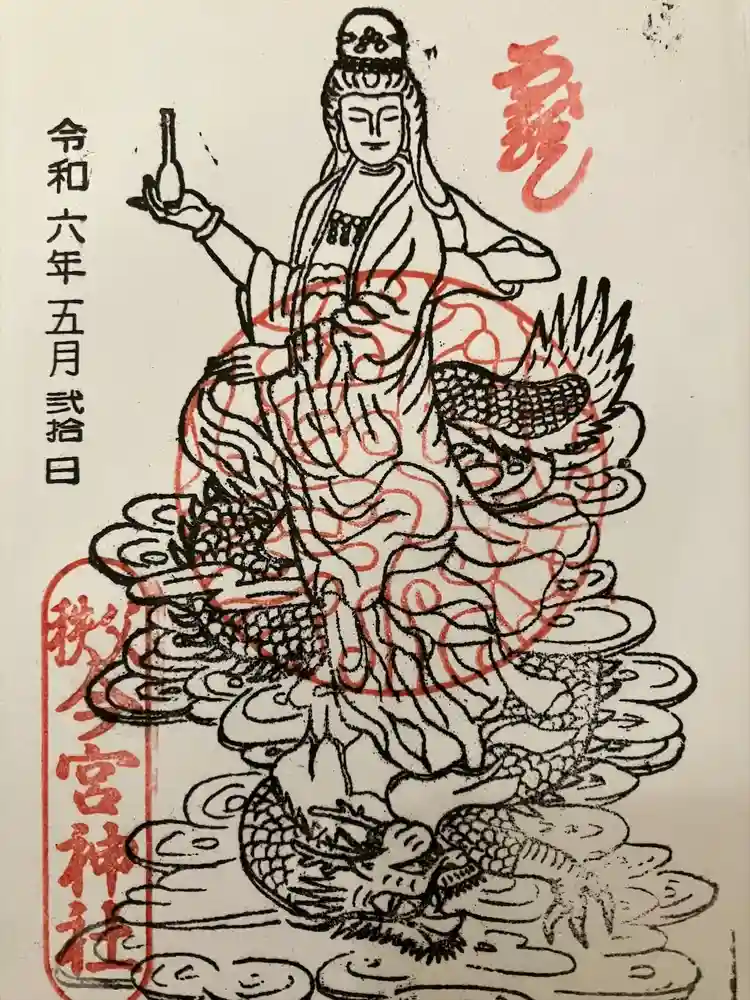 令和六年五月弐拾日
秩父今宮神社